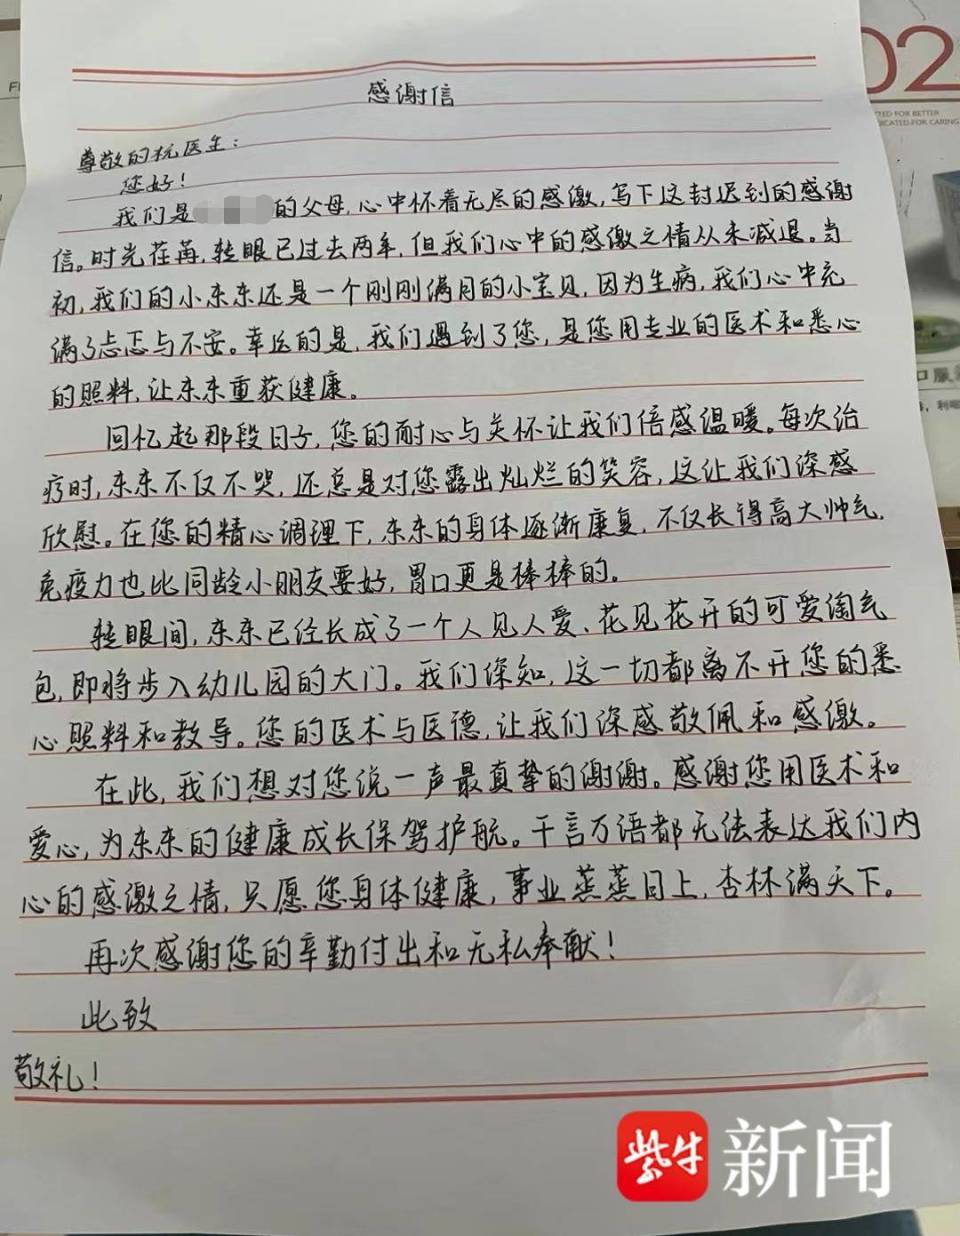 感谢信
尊敬的杭医生：
您好！
我们是 的父母，心中怀着无尽的感激，写下这封迟到的感谢
信。时光荏苒，转眼已过去两年，但我们心中的感激之情从未减退。当
初，我们的小东东还是一个刚刚满月的小宝贝，因为生病，我们心中充
满了忐忑与不安。幸运的是，我们遇到了您，是您用专业的医术和悉心
的照料，让东东重获健康。
回忆起那段日子，您的耐心与关怀让我们倍感温暖。每次治
疗时，东东不仅不哭，还总是对您露出灿烂的笑容，这让我们深感
欣慰。在您的精心调理下，东东的身体逐渐康复，不仅长得高大帅气，
免疫力也比同龄小朋友要好，胃口更是棒棒的。
转眼间，东东已经长成了一个人见人爱、花见花开的可爱淘气
包，即将步入幼儿园的大门。我们深知，这一切都离不开您的悉
心照料和教导。您的医术与医德，让我们深感敬佩和感激。
在此，我们想对您说一声最真挚的谢谢。感谢您用医术和
爱心，为东东的健康成长保驾护航。千言万语都无法表达我们内
心的感激之情，只愿您身体健康，事业蒸蒸日上，杏林满天下。
再次感谢您的辛勤付出和无私奉献！
此致
敬礼！
02
TED FOR BETTER
DICATED FOR CARING
口服
紫牛新闻